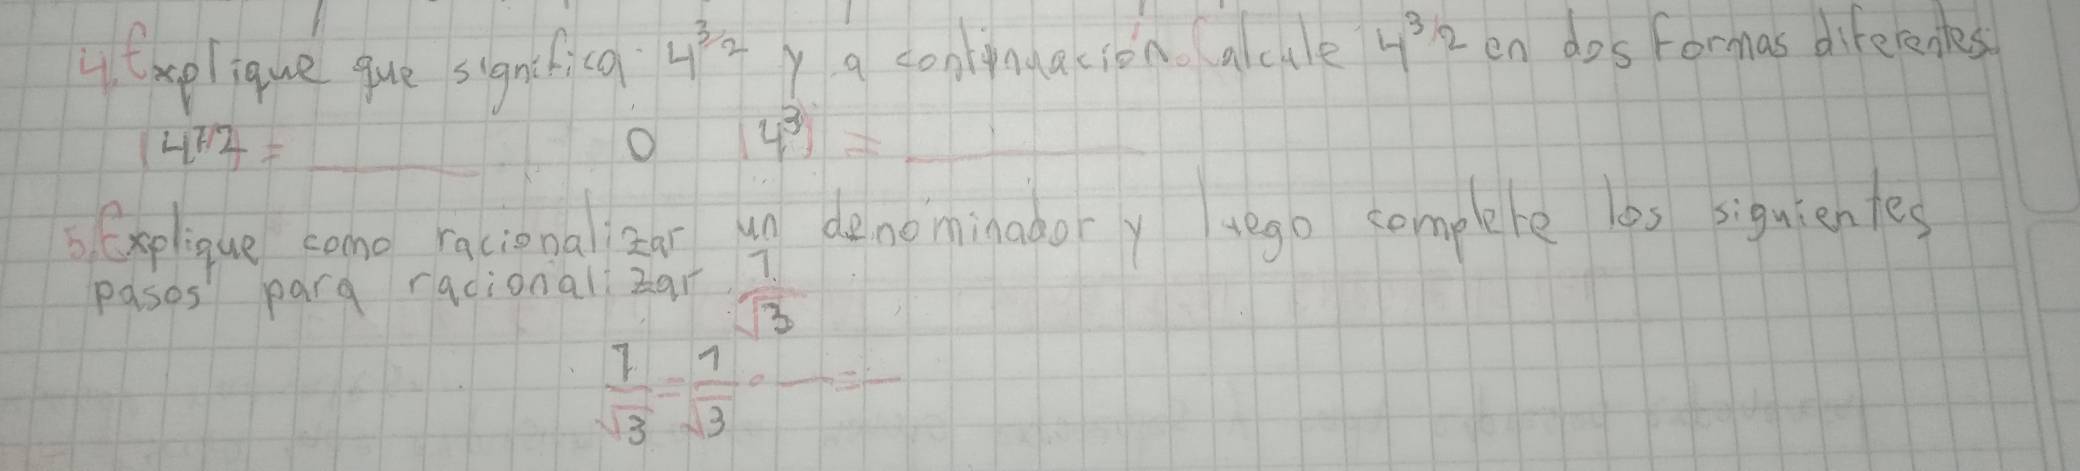 4. Explique que significa 4^3/2 y a continuación calcule 4^3/2 en dos formas diferentes.
(4^1/2) = ______ o (4^3) = ______
5. Explique como racionalizar un denominador y luego complete los siguientes
pasos para racionalizar 1/√3
1/√3 = 1/√3 · — = —